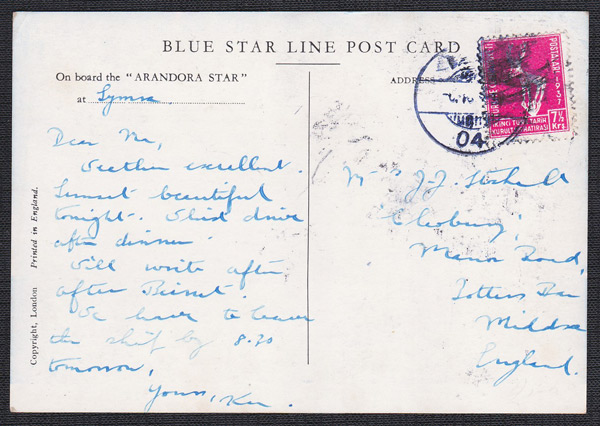 BLUE STAR LINE POST CARD
On board the "ARANDORA STAR"
at
ADDRESS
Dear Ma,
Weather excellent.
Sunset beautiful
tonight.
after dinner.
Will write after
after Beirut.
We have to leave
the ship by 8.30
tomorrow,
Yours, Ken.
POSTALARI 1937
IKINCI TÜRK TARIH
KURULTAYI HATIRASI
7½
Krş.
04
Mrs J.J.
Manor Road,
Potters Bar
Middsx
England.
Copyright, London Printed in England.